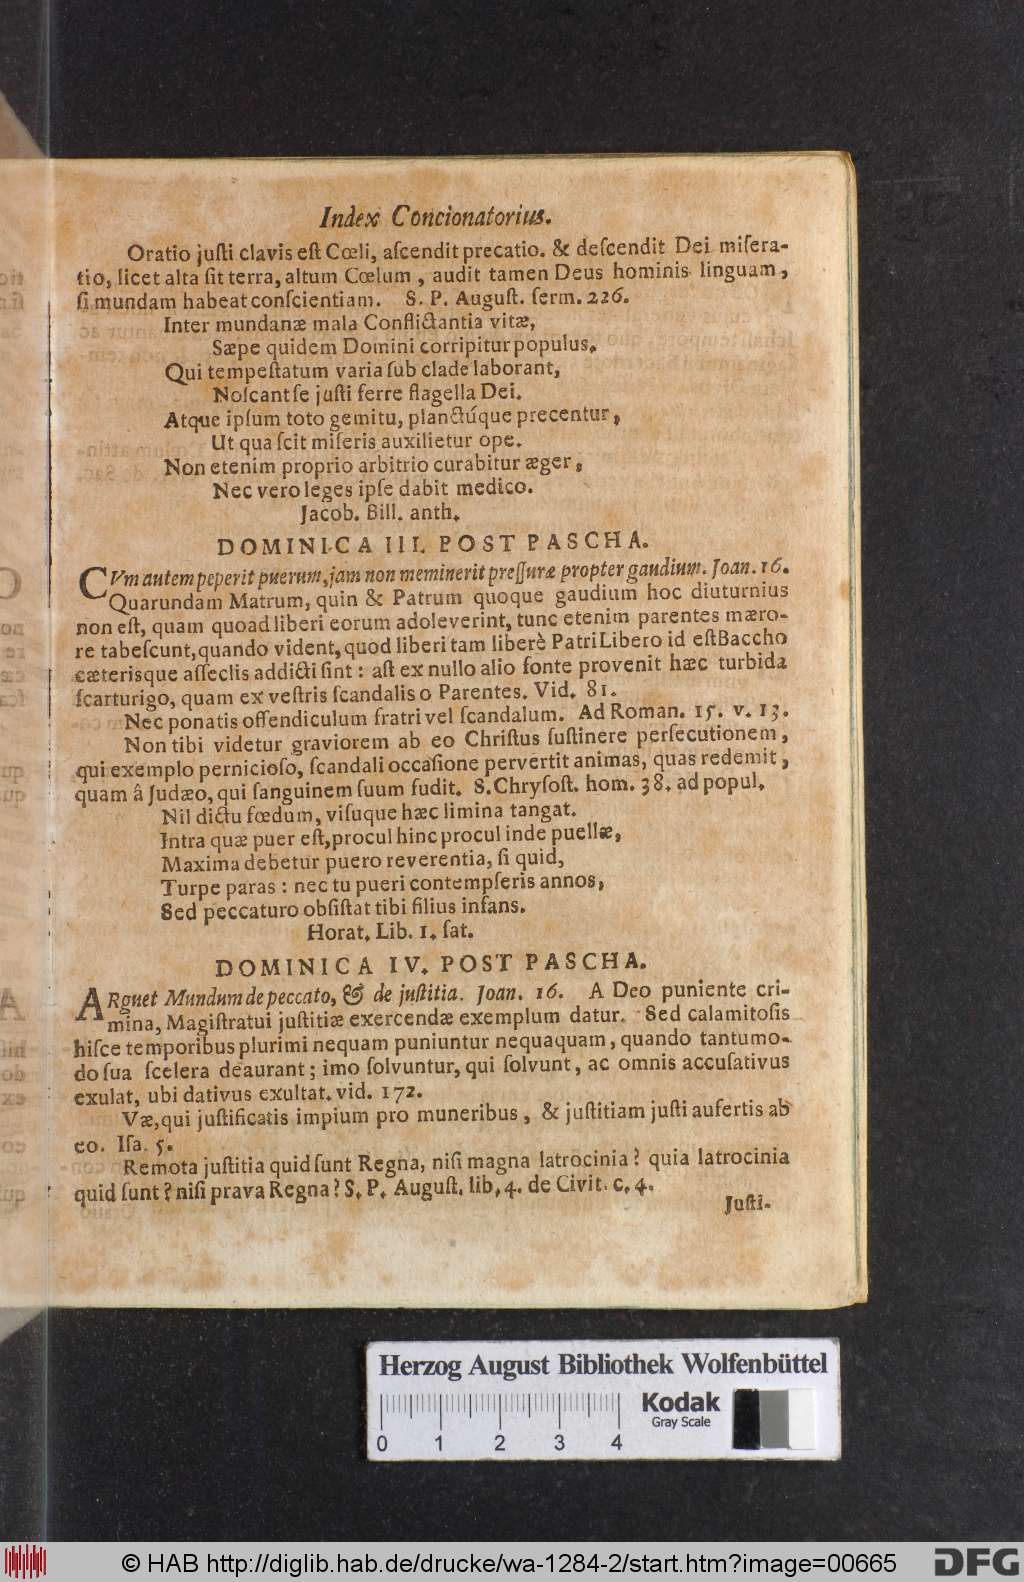 Index Concionatorius.
Oratio juſti clavis eſt Cœli, aſcendit precatio. & deſcendit Dei miſera-
tio, licet alta ſit terra, altum Cœlum, audit tamen Deus hominis linguam,
ſi mundam habeat conſcientiam. S. P. Auguſt. ſerm. 226.
Inter mundanæ mala Conflictantia vitæ,
Sæpe quidem Domini corripitur populus.
Qui tempeſtatum varia ſub clade laborant,
Noſcant ſe juſti ferre flagella Dei.
Atque ipſum toto gemitu, planctúque precentur,
Ut qua ſcit miſeris auxilietur ope.
Non etenim proprio arbitrio curabitur æger,
Nec vero leges ipſe dabit medico.
Jacob. Bill. anth.
DOMINICA III. POST PASCHA.
CVm autem peperit puerum, jam non meminerit preſſuræ propter gaudium. Joan. 16.
Quarundam Matrum, quin & Patrum quoque gaudium hoc diuturnius
non eſt, quam quoad liberi eorum adoleverint, tunc etenim parentes mæro-
re tabeſcunt, quando vident, quod liberi tam liberè Patri Libero id eſt Baccho
cæterisque aſſeclis addicti ſint: aſt ex nullo alio fonte provenit hæc turbida
ſcarturigo, quam ex veſtris ſcandalis o Parentes. Vid. 81.
Nec ponatis offendiculum fratri vel ſcandalum. Ad Roman. 15. v. 13.
Non tibi videtur graviorem ab eo Chriſtus ſuſtinere perſecutionem,
qui exemplo pernicioſo, ſcandali occaſione pervertit animas, quas redemit,
quam â Judæo, qui ſanguinem ſuum fudit. S. Chryſoſt. hom. 38. ad popul.
Nil dictu fœdum, viſuque hæc limina tangat.
Intra quæ puer eſt, procul hinc procul inde puellæ,
Maxima debetur puero reverentia, ſi quid,
Turpe paras: nec tu pueri contempſeris annos,
Sed peccaturo obſiſtat tibi filius infans.
Horat. Lib. 1. ſat.
DOMINICA IV. POST PASCHA.
ARguet Mundum de peccato, & de juſtitia. Joan. 16. A Deo puniente cri-
mina, Magiſtratui juſtitiæ exercendæ exemplum datur. Sed calamitoſis
hiſce temporibus plurimi nequam puniuntur nequaquam, quando tantumo-
do ſua ſcelera deaurant; imo ſolvuntur, qui ſolvunt, ac omnis accuſativus
exulat, ubi dativus exultat. vid. 172.
Væ, qui juſtificatis impium pro muneribus, & juſtitiam juſti aufertis ab
eo. Iſa. 5.
Remota juſtitia quid ſunt Regna, niſi magna latrocinia? quia latrocinia
quid ſunt? niſi prava Regna? S. P. Auguſt. lib. 4. de Civit. c. 4.
Juſti-
Herzog August Bibliothek Wolfenbüttel
Kodak
Gray Scale
0 1 2 3 4
© HAB http://diglib.hab.de/drucke/wa-1284-2/start.htm?image=00665
DFG